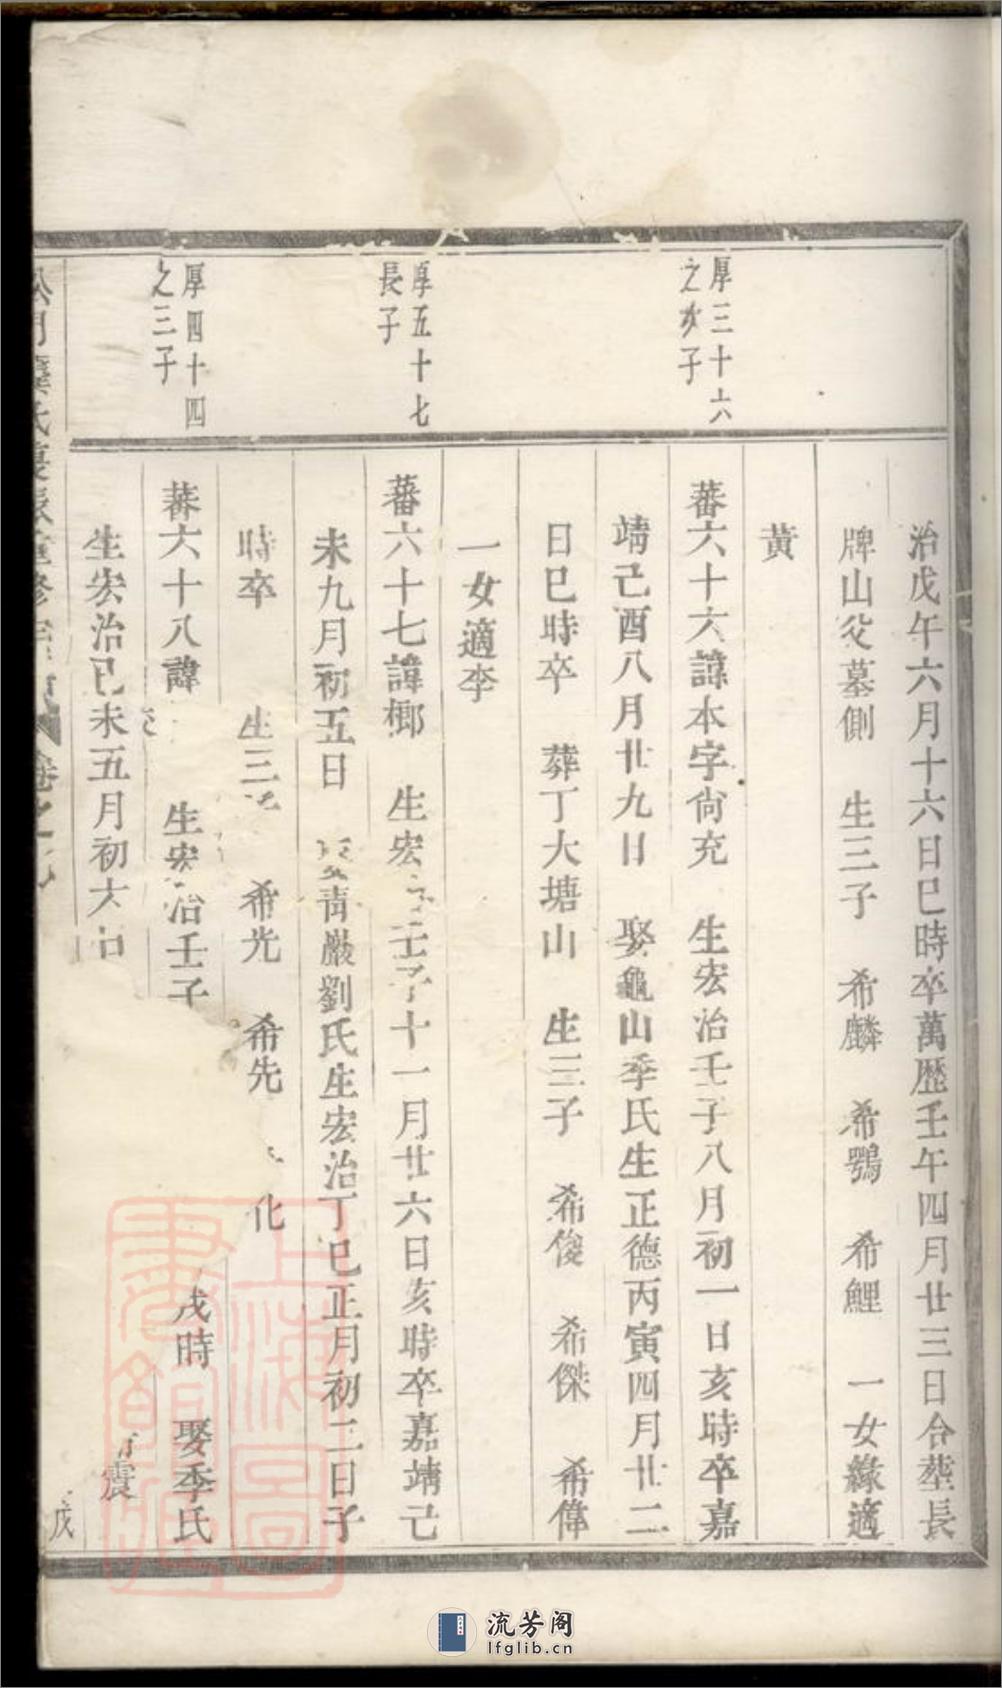 治戊午六月十六日巳時卒萬歷壬午四月廿三日合塟長
牌山父墓側 生三子 希麟 希鶚 希鯉 一女緣適
黃
厚三十六
之次子
蕃六十六諱本字尙充 生宏治壬子八月初一日亥時卒嘉
靖己酉八月廿九日 娶龜山季氏生正德丙寅四月廿二
日巳時卒 葬丁大塘山 生三子 希俊 希傑 希偉
一女適李
厚五十七
長子
蕃六十七諱櫛 生宏壬子十一月廿六日亥時卒嘉靖己
未九月初五日 靑巖劉氏生宏治丁巳正月初二日子
時卒 生三 希光 希先 化
厚四十四
之三子
蕃六十八諱 生宏治壬子 戌時 娶季氏
生宏治己未五月初六 震
戊
氏 重修宗 卷之
上海圖書館藏
流芳阁
lfglib.cn